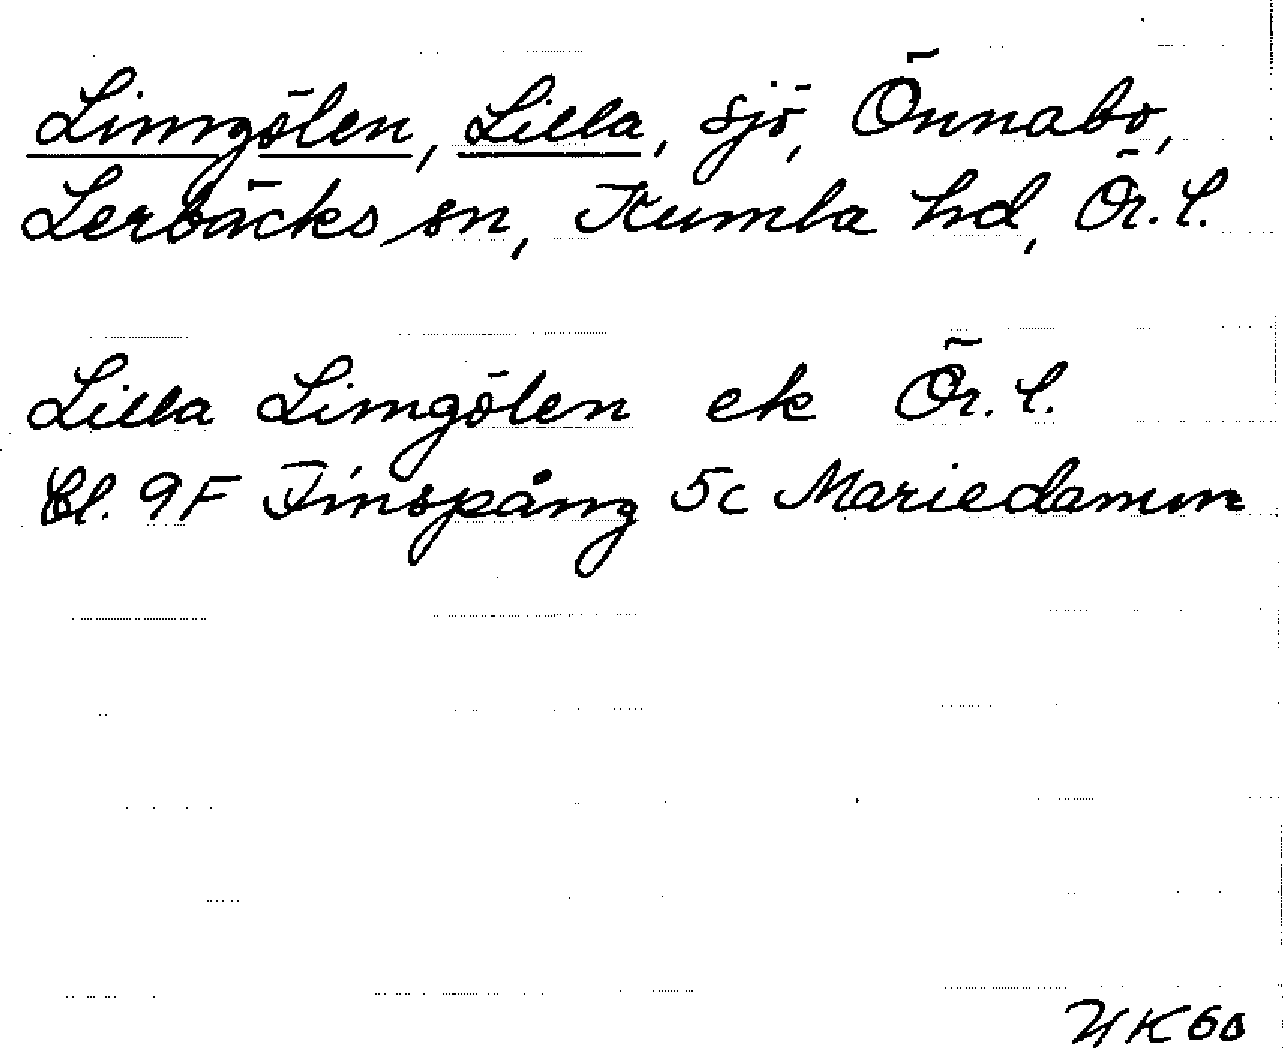 Limgölen, Lilla, sjö, Önnabo,
Lerbäcks sn, Kumla hd, Ör. l.
Lilla Limgölen ek Ör. l.
Bl. 9F Finspång 5c Mariedamm